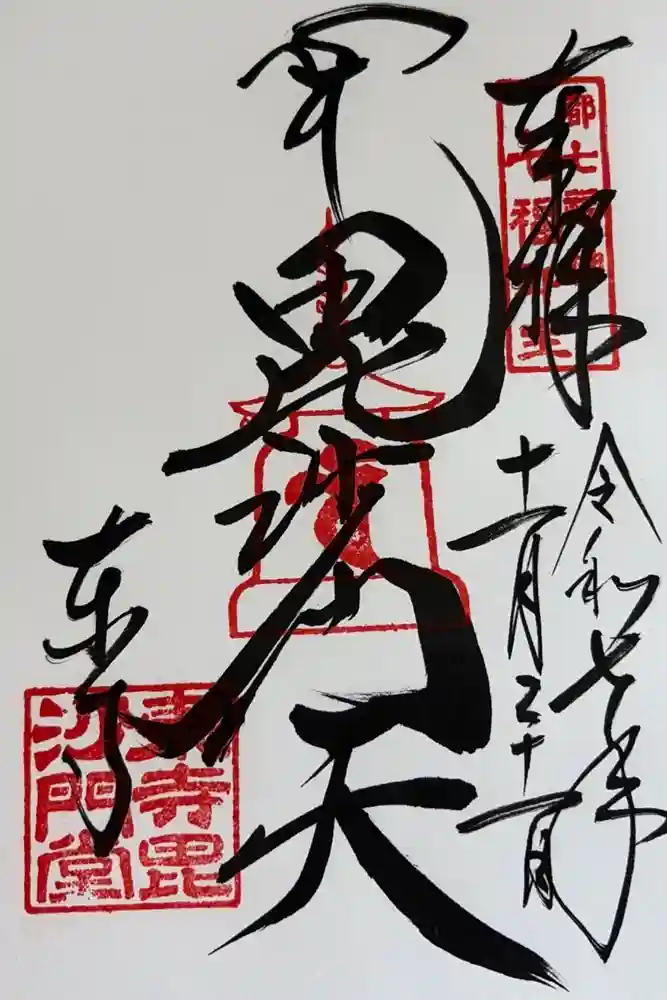 奉拝
都七福
令和七年
十一月二十一日
毘沙門天
東寺
東寺毘
沙門堂